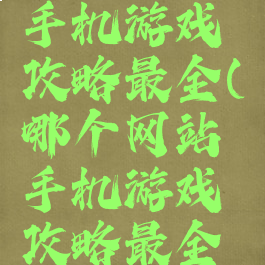 手机游戏
攻略最全(
哪个网站
手机游戏
攻略最全